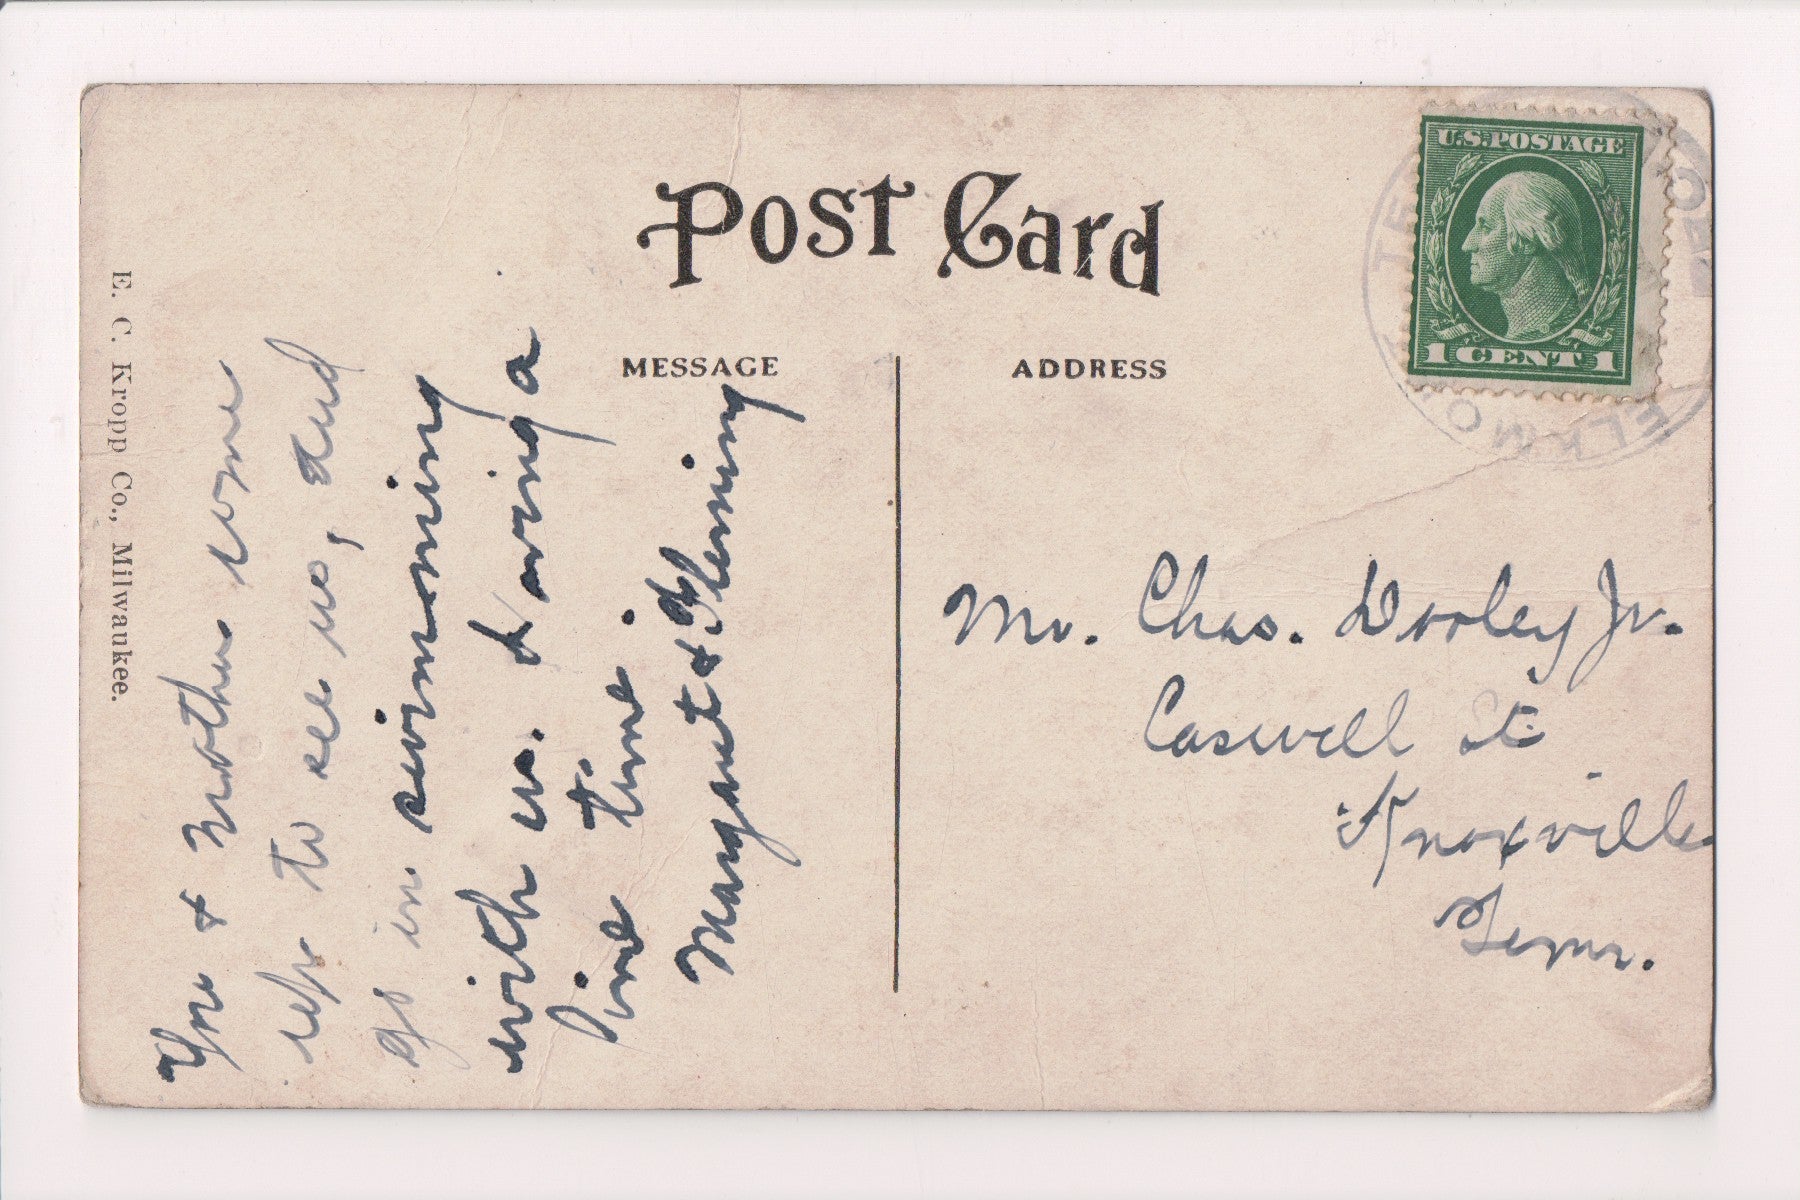 Post Card
MESSAGE
ADDRESS
U.S. POSTAGE
1 CENT 1
TE
ELKMO
E. C. Kropp Co., Milwaukee.
You & mother come
up to see us, and
go in swimming
with us. Having a
fine time.
Margaret & Fleming
Mr. Chas. Dooley Jr.
Caswell St
Knoxville
Tenn.